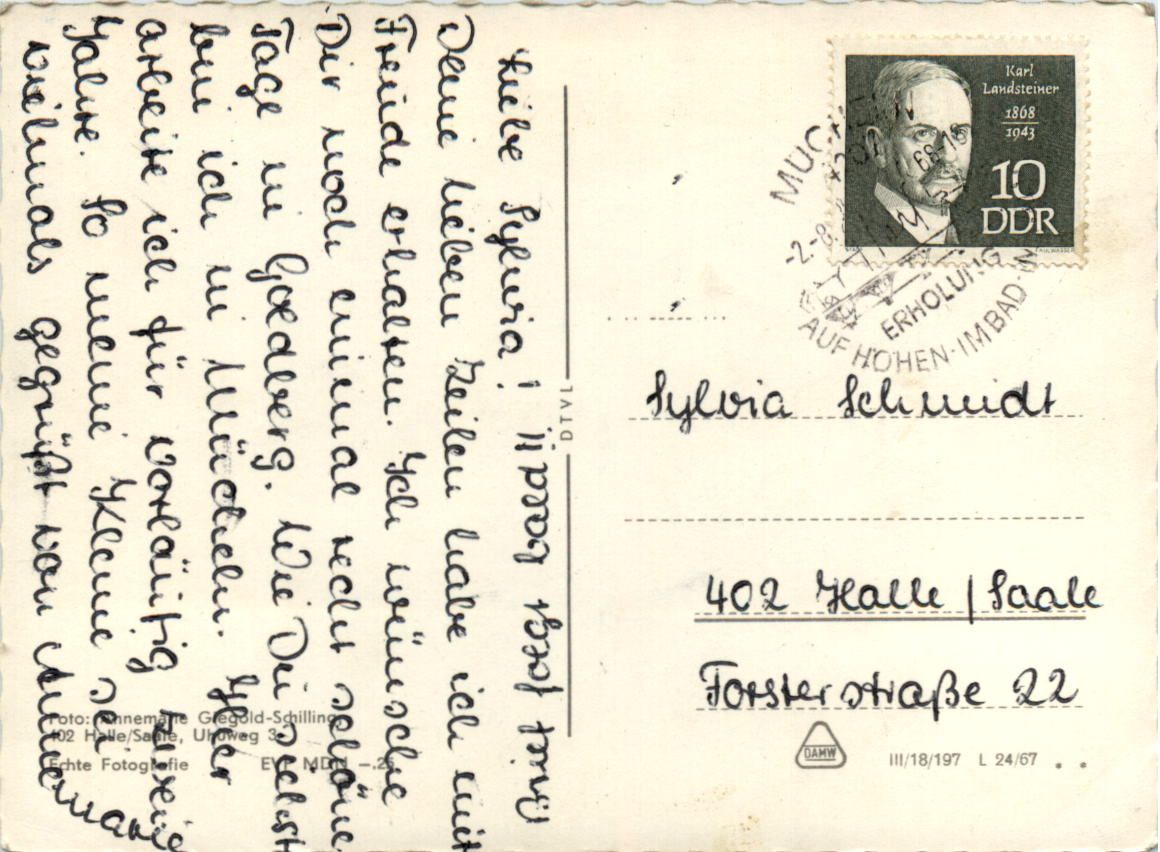 Liebe Sylvia!
Deine lieben Zeilen habe ich mit
Freude erhalten. Ich wünsche
Dir noch einmal recht schöne
Tage in Goedberg. Wie Du siehst
bin ich in Mücheln. Hier
arbeite ich für vorläufig zwei
Jahre. So meine Kleine sei
vielmals gegrüßt von Annemarie
DTVL
Karl
Landsteiner
1868
1943
10
DDR
MÜC
-2.-8.
68-18
ERHOLUNG
AUF HÖHEN·IM BAD·IN
Sylvia Schmidt
402 Halle / Saale
Forsterstraße 22
Foto: Annemarie Giegold-Schilling
402 Halle/Saale, Uhuweg 3
Echte Fotografie EVP MDN -.25
DAMW
III/18/197 L 24/67